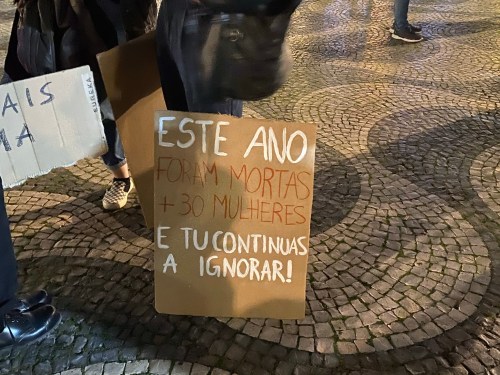 AIS
MA
EUREKA
ESTE ANO
FORAM MORTAS
+30 MULHERES
E TU CONTINUAS
A IGNORAR!